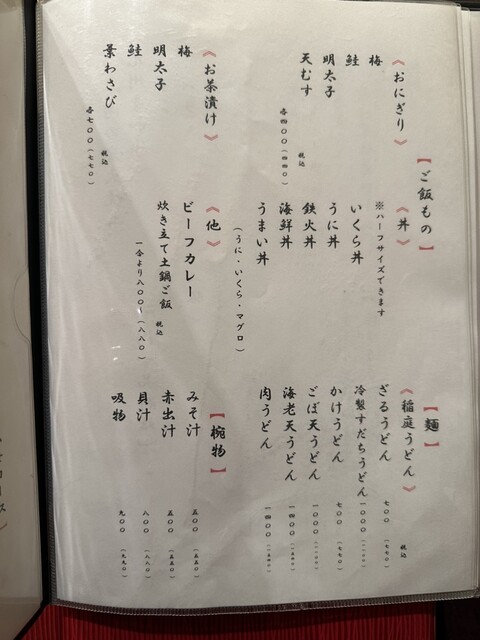 【ご飯もの】
《おにぎり》
梅
鮭
明太子
天むす
各四〇〇(四四〇)
税込
《お茶漬け》
梅
明太子
鮭
葉わさび
各七〇〇(七七〇)
税込
《丼》
※ハーフサイズできます
いくら丼
うに丼
鉄火丼
海鮮丼
うまい丼
(うに・いくら・マグロ)
《他》
ビーフカレー
炊き立て土鍋ご飯
一合より八〇〇〜(八八〇)
税込
【麺】
《稲庭うどん》
税込
ざるうどん 七〇〇(七七〇)
冷製すだちうどん 一〇〇〇(一一〇〇)
かけうどん 七〇〇(七七〇)
ごぼ天うどん 一〇〇〇(一一〇〇)
海老天うどん 一四〇〇(一五四〇)
肉うどん 一四〇〇(一五四〇)
【椀物】
みそ汁 五〇〇(五五〇)
赤出汁 五〇〇(五五〇)
貝汁 八〇〇(八八〇)
吸物 九〇〇(九九〇)